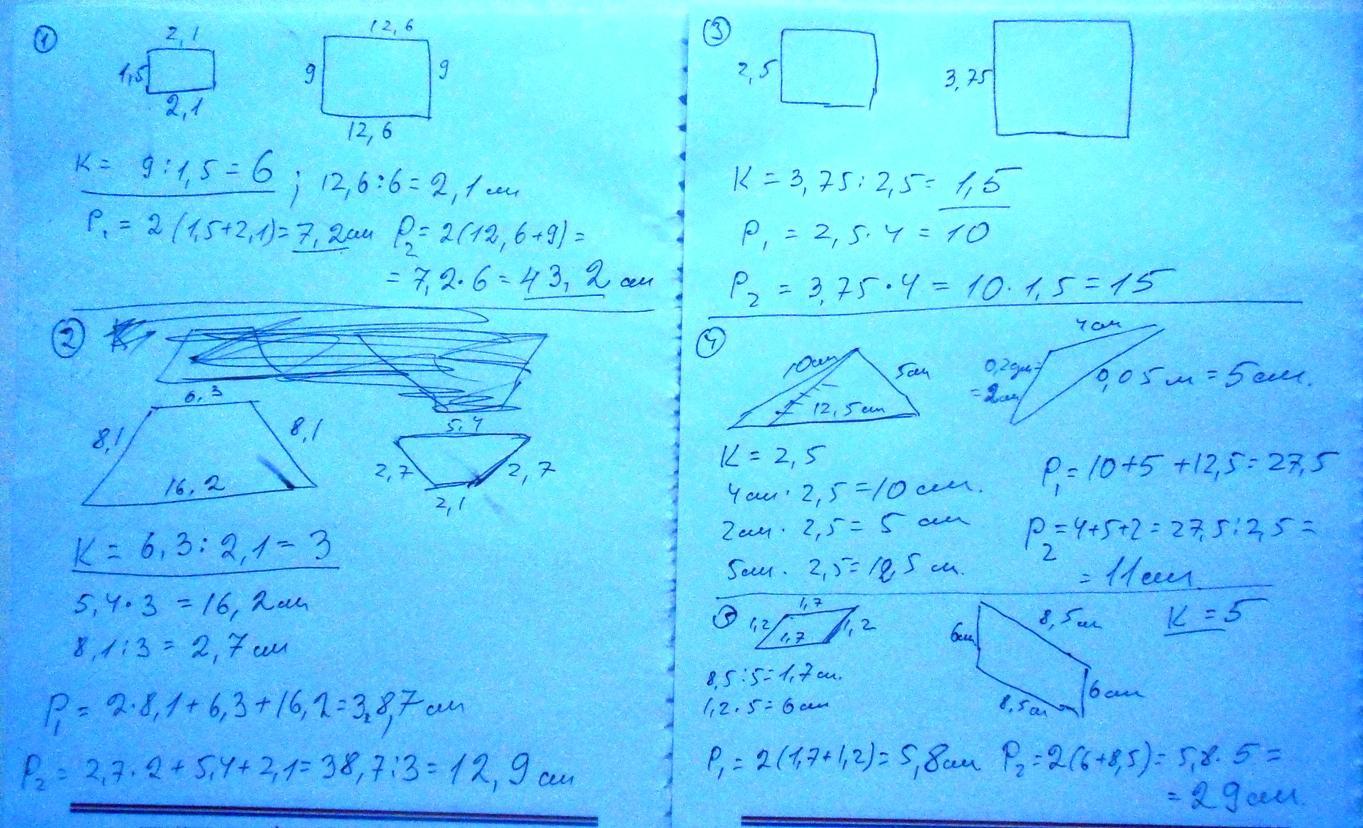 1
2,1
1,5
2,1
12,6
9 9
12,6
K = 9:1,5 = 6 ; 12,6:6 = 2,1 см
P₁ = 2(1,5+2,1) = 7,2 см P₂ = 2(12,6+9) =
= 7,2·6 = 43,2 см
2
6,3
8,1 8,1
16,2
5,4
2,7 2,7
2,1
K = 6,3:2,1 = 3
5,4·3 = 16,2 см
8,1:3 = 2,7 см
P₁ = 2·8,1+6,3+16,2 = 38,7 см
P₂ = 2,7·2+5,4+2,1 = 38,7:3 = 12,9 см
3
2,5
3,75
K = 3,75:2,5 = 1,5
P₁ = 2,5·4 = 10
P₂ = 3,75·4 = 10·1,5 = 15
4
10см 5см
12,5см
4см
0,2дм =
= 2см
0,05 м = 5 см.
K = 2,5
4см · 2,5 = 10 см.
2см · 2,5 = 5 см
5см · 2,5 = 12,5 см.
P₁ = 10+5+12,5 = 27,5
P₂ = 4+5+2 = 27,5:2,5 =
= 11 см
5
1,7
1,2 1,2
1,7
8,5см
6см
6см
8,5см
K = 5
8,5:5 = 1,7см.
1,2·5 = 6см
P₁ = 2(1,7+1,2) = 5,8см P₂ = 2(6+8,5) = 5,8·5 =
= 29см.